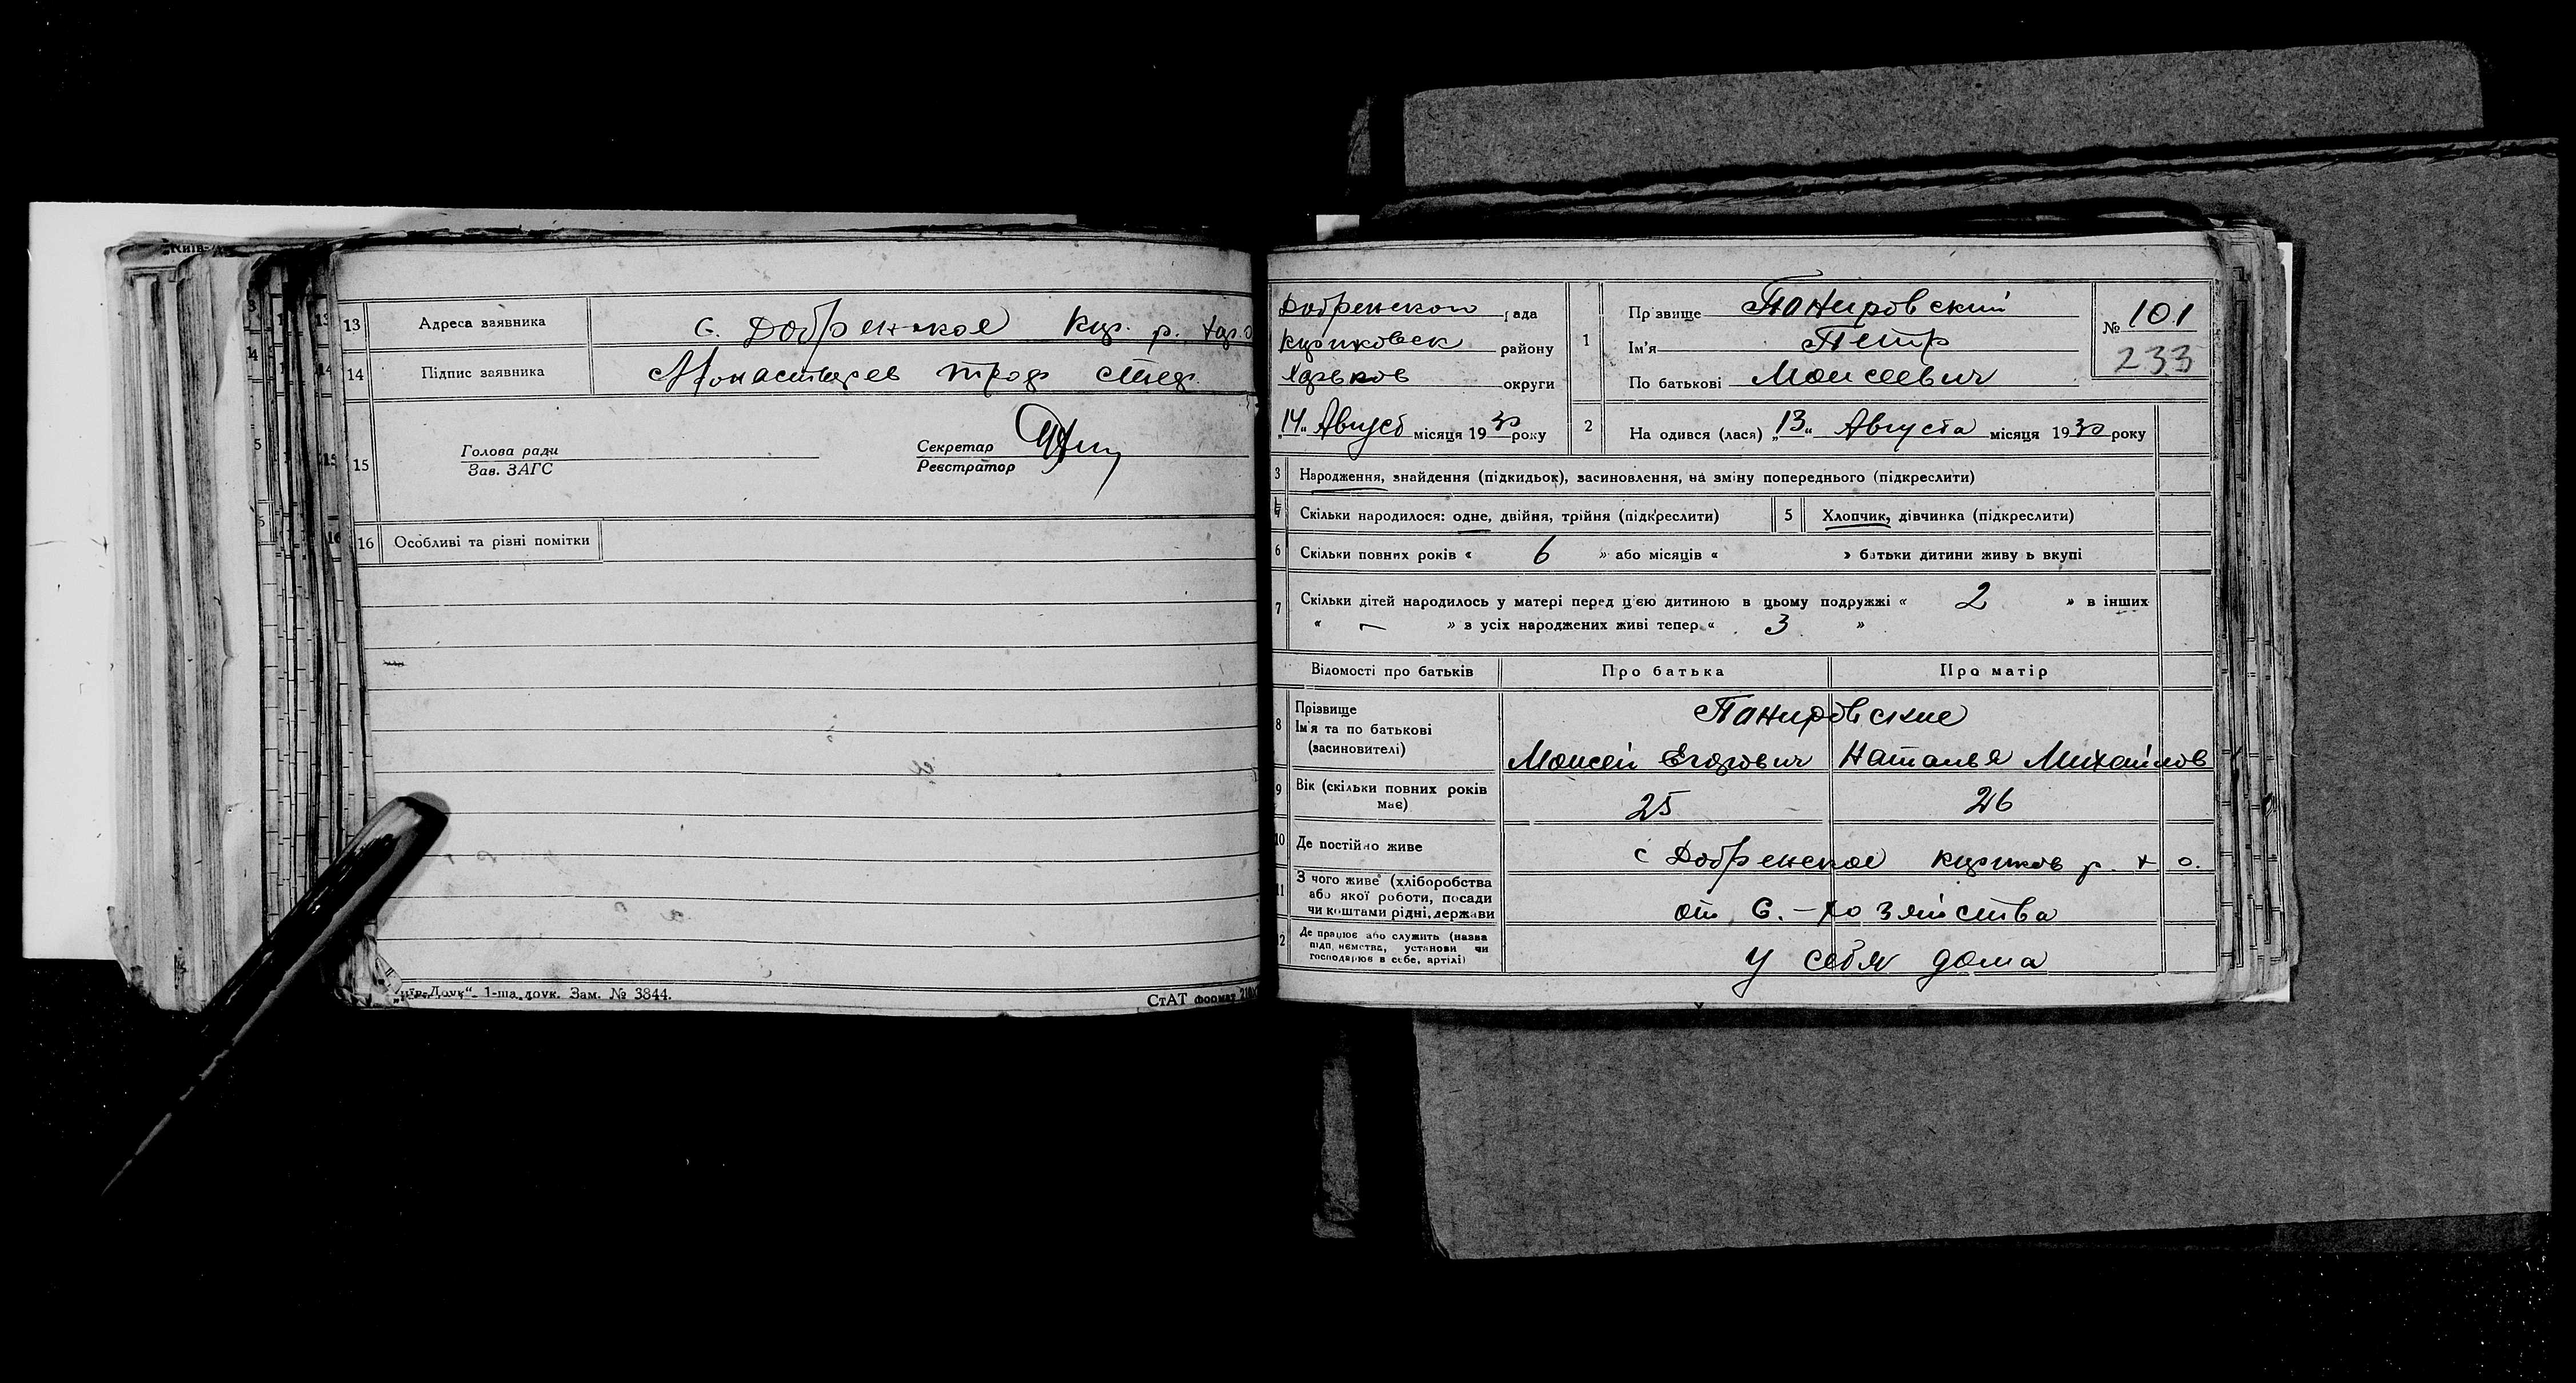 13 Адреса заявника с. Добренькое Кур. р. Хар. о
14 Підпис заявника
15 Голова ради
Зав. ЗАГС
Секретар
Реєстратор
16 Особливі та різні помітки
Друк“. 1-ша друк. Зам. № 3844.
СтАТ формат
Добренской рада
района
Харьков округи
„14„ Август місяця 1930 року
1 Прізвище Панировский
Ім'я Петр
По батькові Моисеевич
№ 101
233
2 На одився (лася) „13„ Августа місяця 1930 року
3 Народження, знайдення (підкидьок), засиновлення, на зміну попереднього (підкреслити)
4 Скільки народилося: одне, двійня, трійня (підкреслити) 5 Хлопчик, дівчинка (підкреслити)
6 Скільки повних років « 6 » або місяців « » батьки дитини живу ь вкупі
7 Скільки дітей народилось у матері перед цією дитиною в цьому подружжі « 2 » в інших
« — » з усіх народжених живі тепер « 3 »
Відомості про батьків Про батька Про матір
8 Прізвище
Ім'я та по батькові
(засиновителі)
Панировские
Моисей Егорович Наталья Михайлов
9 Вік (скільки повних років
має)
25 26
10 Де постійно живе с Добренькое р. х о.
11 З чого живе (хліборобства
або якої роботи, посади
чи коштами рідні, держави
от с.-хозяйства
12 Де працює або служить (назва
підп, ємства, установи чи
господарює в себе, артілі)
у себя дома